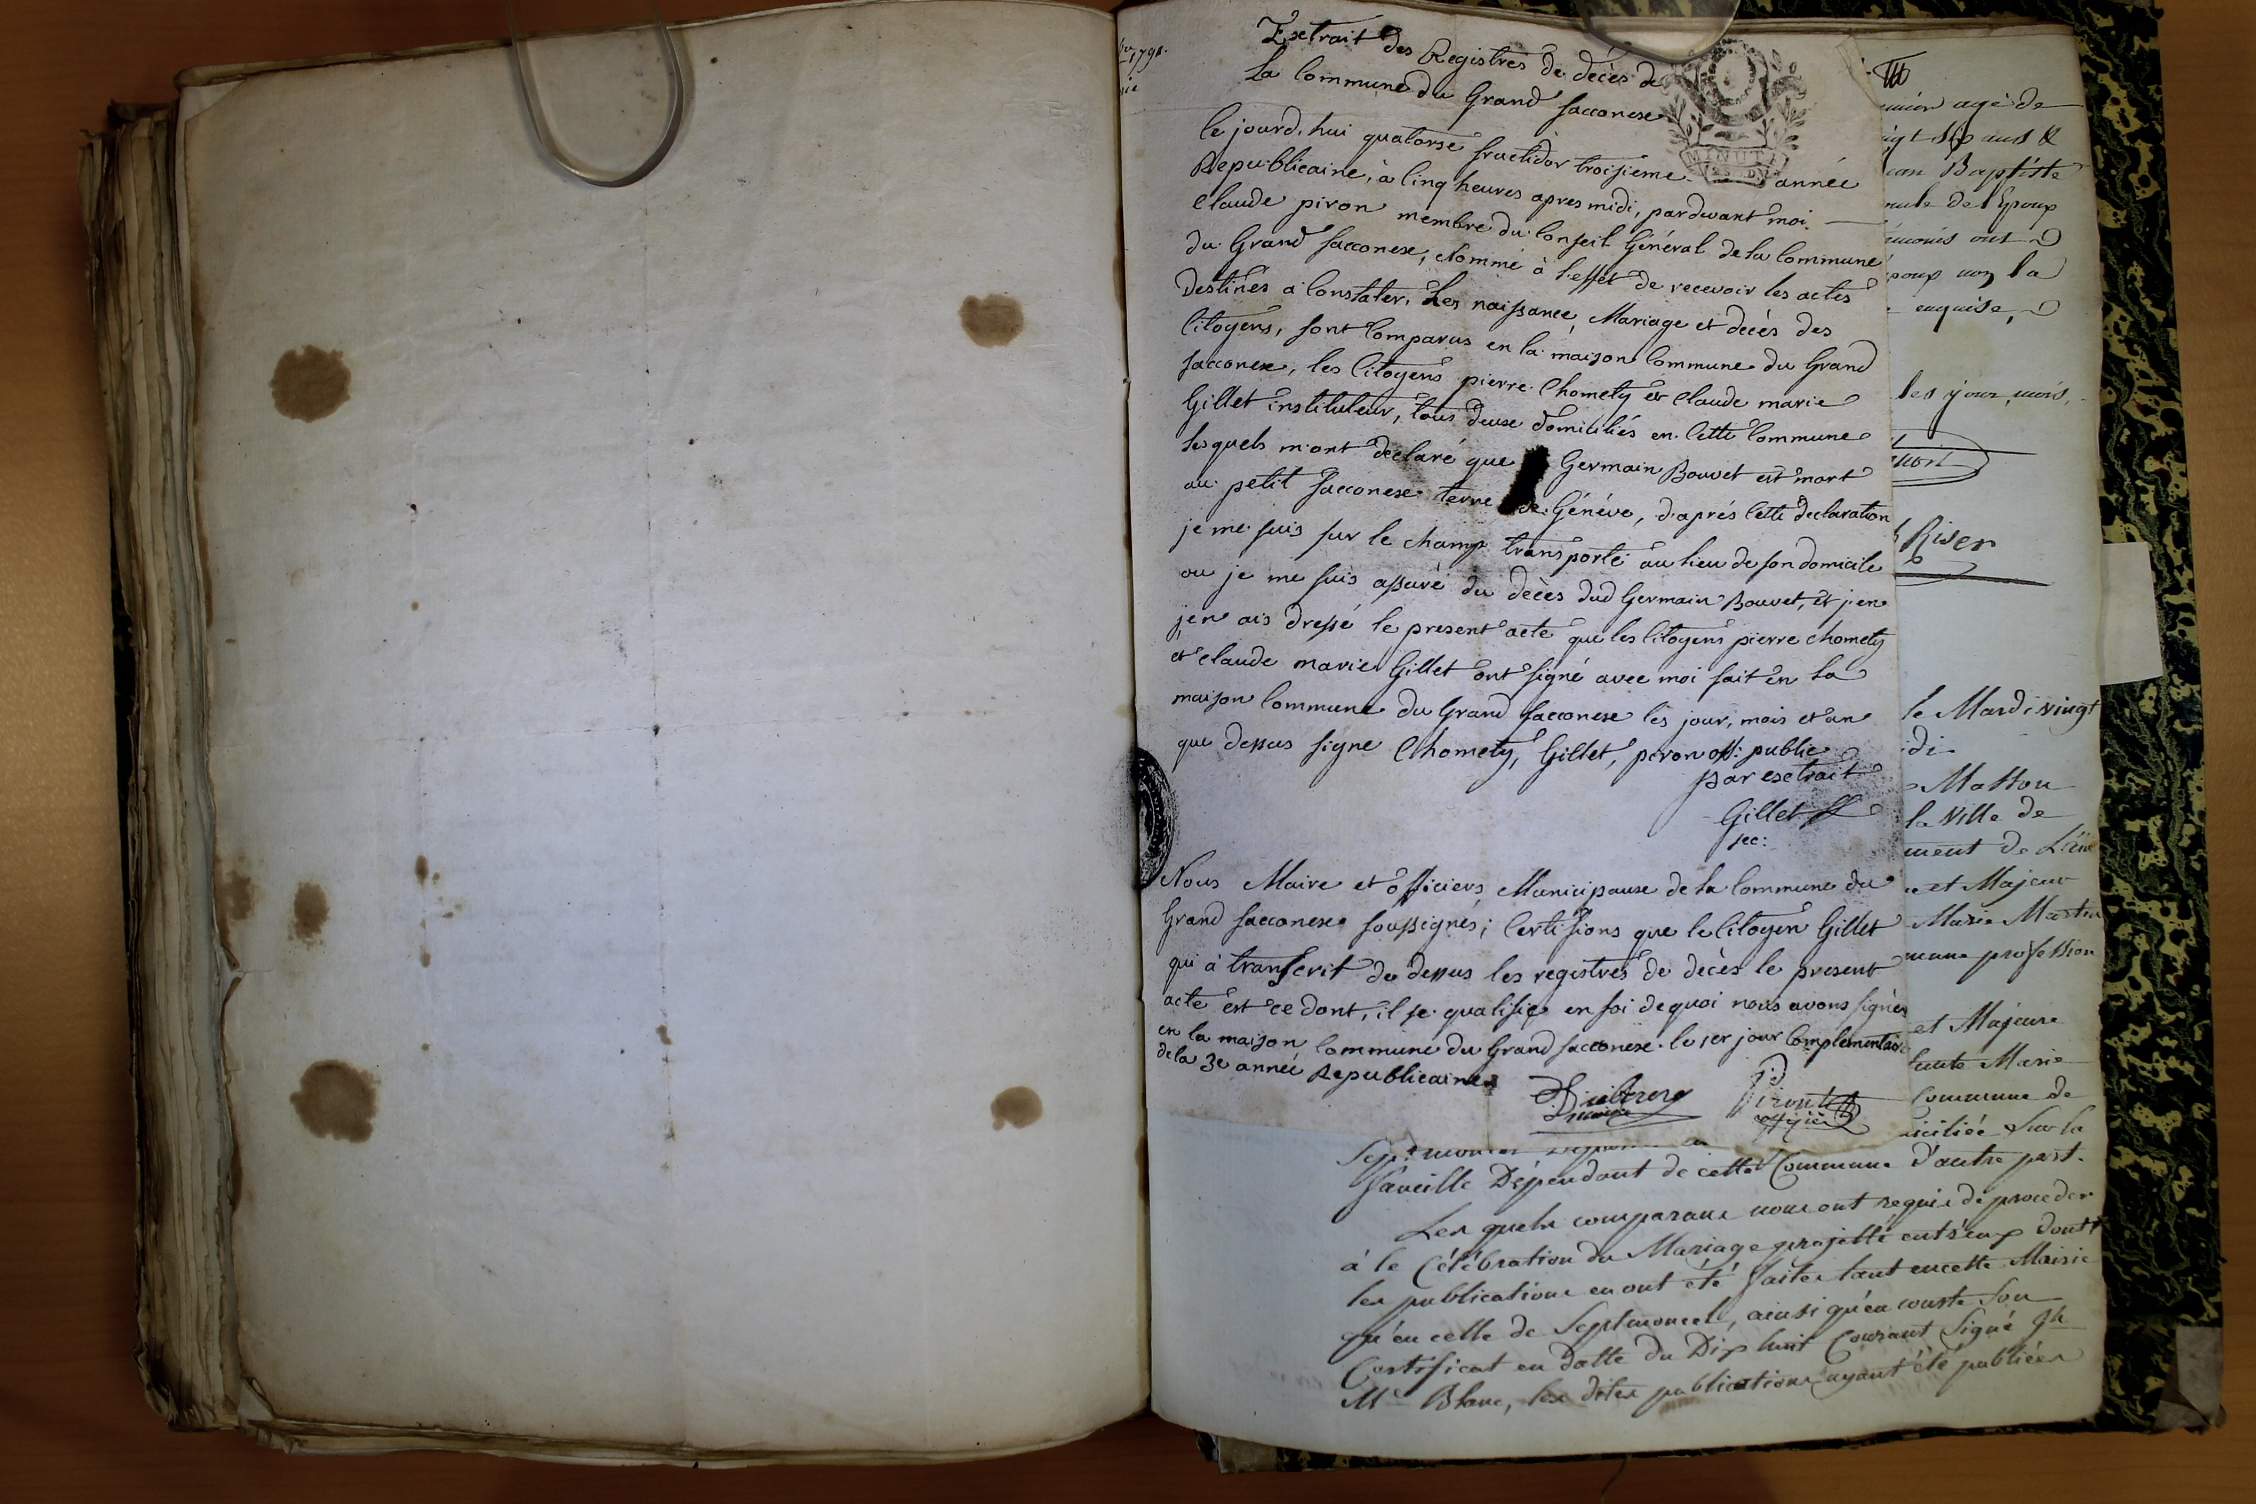 1791.
Extrait des Registres de décès de
La Commune du Grand Sacconex
MINUTE
le jourd'hui quatorse fructidor troisieme année
Republicaine, à Cinq heures apres midi, pardevant moi
Claude piron membre du Conseil Général de la Commune
du Grand Sacconex, Nommé à l'effet de recevoir les actes
Destinés a Constater, Les naissance, Mariage et decès des
Citoyens, sont Comparus en la maison Commune du Grand
Sacconex, les Citoyens pierre Chomety et Claude marie
Gillet instituteur, tous deux domiciliés en Cette Commune
lesquels m'ont declaré que Germain Bouvet est mort
au petit Sacconex terre de Généve, d'aprés Cette declaration
je me suis sur le champ transporté au lieu de son domicile
ou je me suis assuré du décès dud Germain Bouvet, et j'en
j'en ais dressé le present acte que les Citoyens pierre Chomety
et Claude marie Gillet ont signé avec moi fait en la
maison Commune du Grand Sacconex les jour, mois et an
que dessus signe Chomety, Gillet, piron off: public
par extrait
Gillet
sec:
Nous Maire et Officiers Municipaux de la Commune du
Grand Sacconex soussignés; Certifions que le Citoyen Gillet
qui à transcrit de dessus les registres de decès le present
acte est ce dont, il se qualifie en foi de quoi nous avons signés
en la maison Commune du Grand Sacconex le 1er jour Complementaire
de la 3e année Republicaine
Piront
officier
agé de
sip ans &
Baptiste
de l'Epoux
ont
non la
enquise,
les jour, mois,
Riser
le Mardi vingt
di
Matton
la Ville de
ment de L'ain
et Majeur
Marie Martin
mane profession
et Majeure
Marie
Commune de
iciliée Sur la
faucille Dépendant de cette Commune d'autre part.
Les quels comparans nous ont requis de procéder
à le Célébration du Mariage projetté entr'eux dont
les publications en ont été faites tant en cette Mairie
qu'en celle de Septmoncel, ainsi qu'en conste son
Certificat en datte du Dix huit Courant Signé Jh
Mie Blanc, les dites publications ayant été publiées